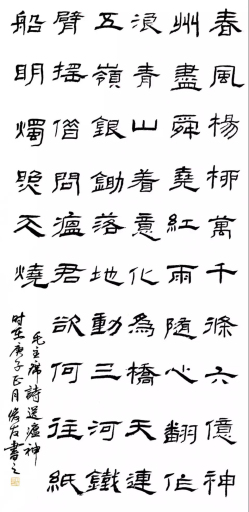 春風楊柳萬千條六億神
州盡舜堯紅雨隨心翻作
浪青山着意化為橋天連
五嶺銀鋤落地動三河鐵
臂搖借問瘟君欲何往紙
船明燭照天燒
毛主席詩送瘟神
时在庚子正月俊友書之